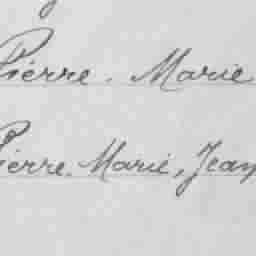 Pierre. Marie
Pierre, Marie, Jean